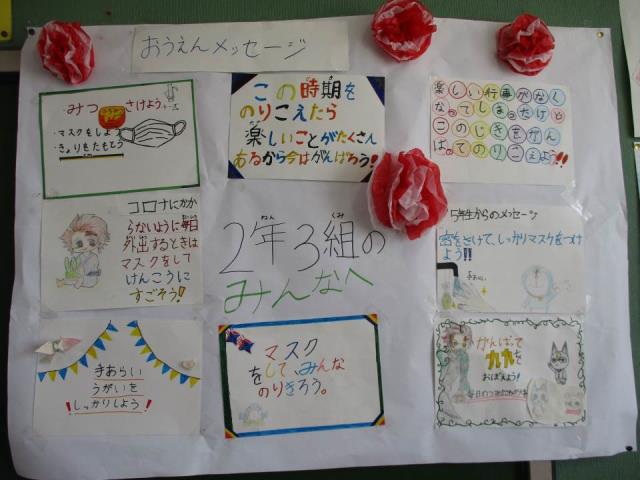 おうえんメッセージ
みつ さけよう
・マスクをしよう
・きょりをたもとう
この時期を
のりこえたら
楽しいことがたくさん
あるから今はがんばろう!!
楽しい行事がなく
なってしまったけど
このじきをがん
ばってのりこえよう!!
コロナにかか
らないように毎日
外出するときは
マスクをして
けんこうに
すごそう!
2年3組の
ねん くみ
みんなへ
5年生からのメッセージ
密をさけて、しっかりマスクをつけ
よう!!
手あらい
うがいを
!しっかりしよう!
マスク
をして、みんな
のりきろう。
がんばって
九九を
おぼえよう!